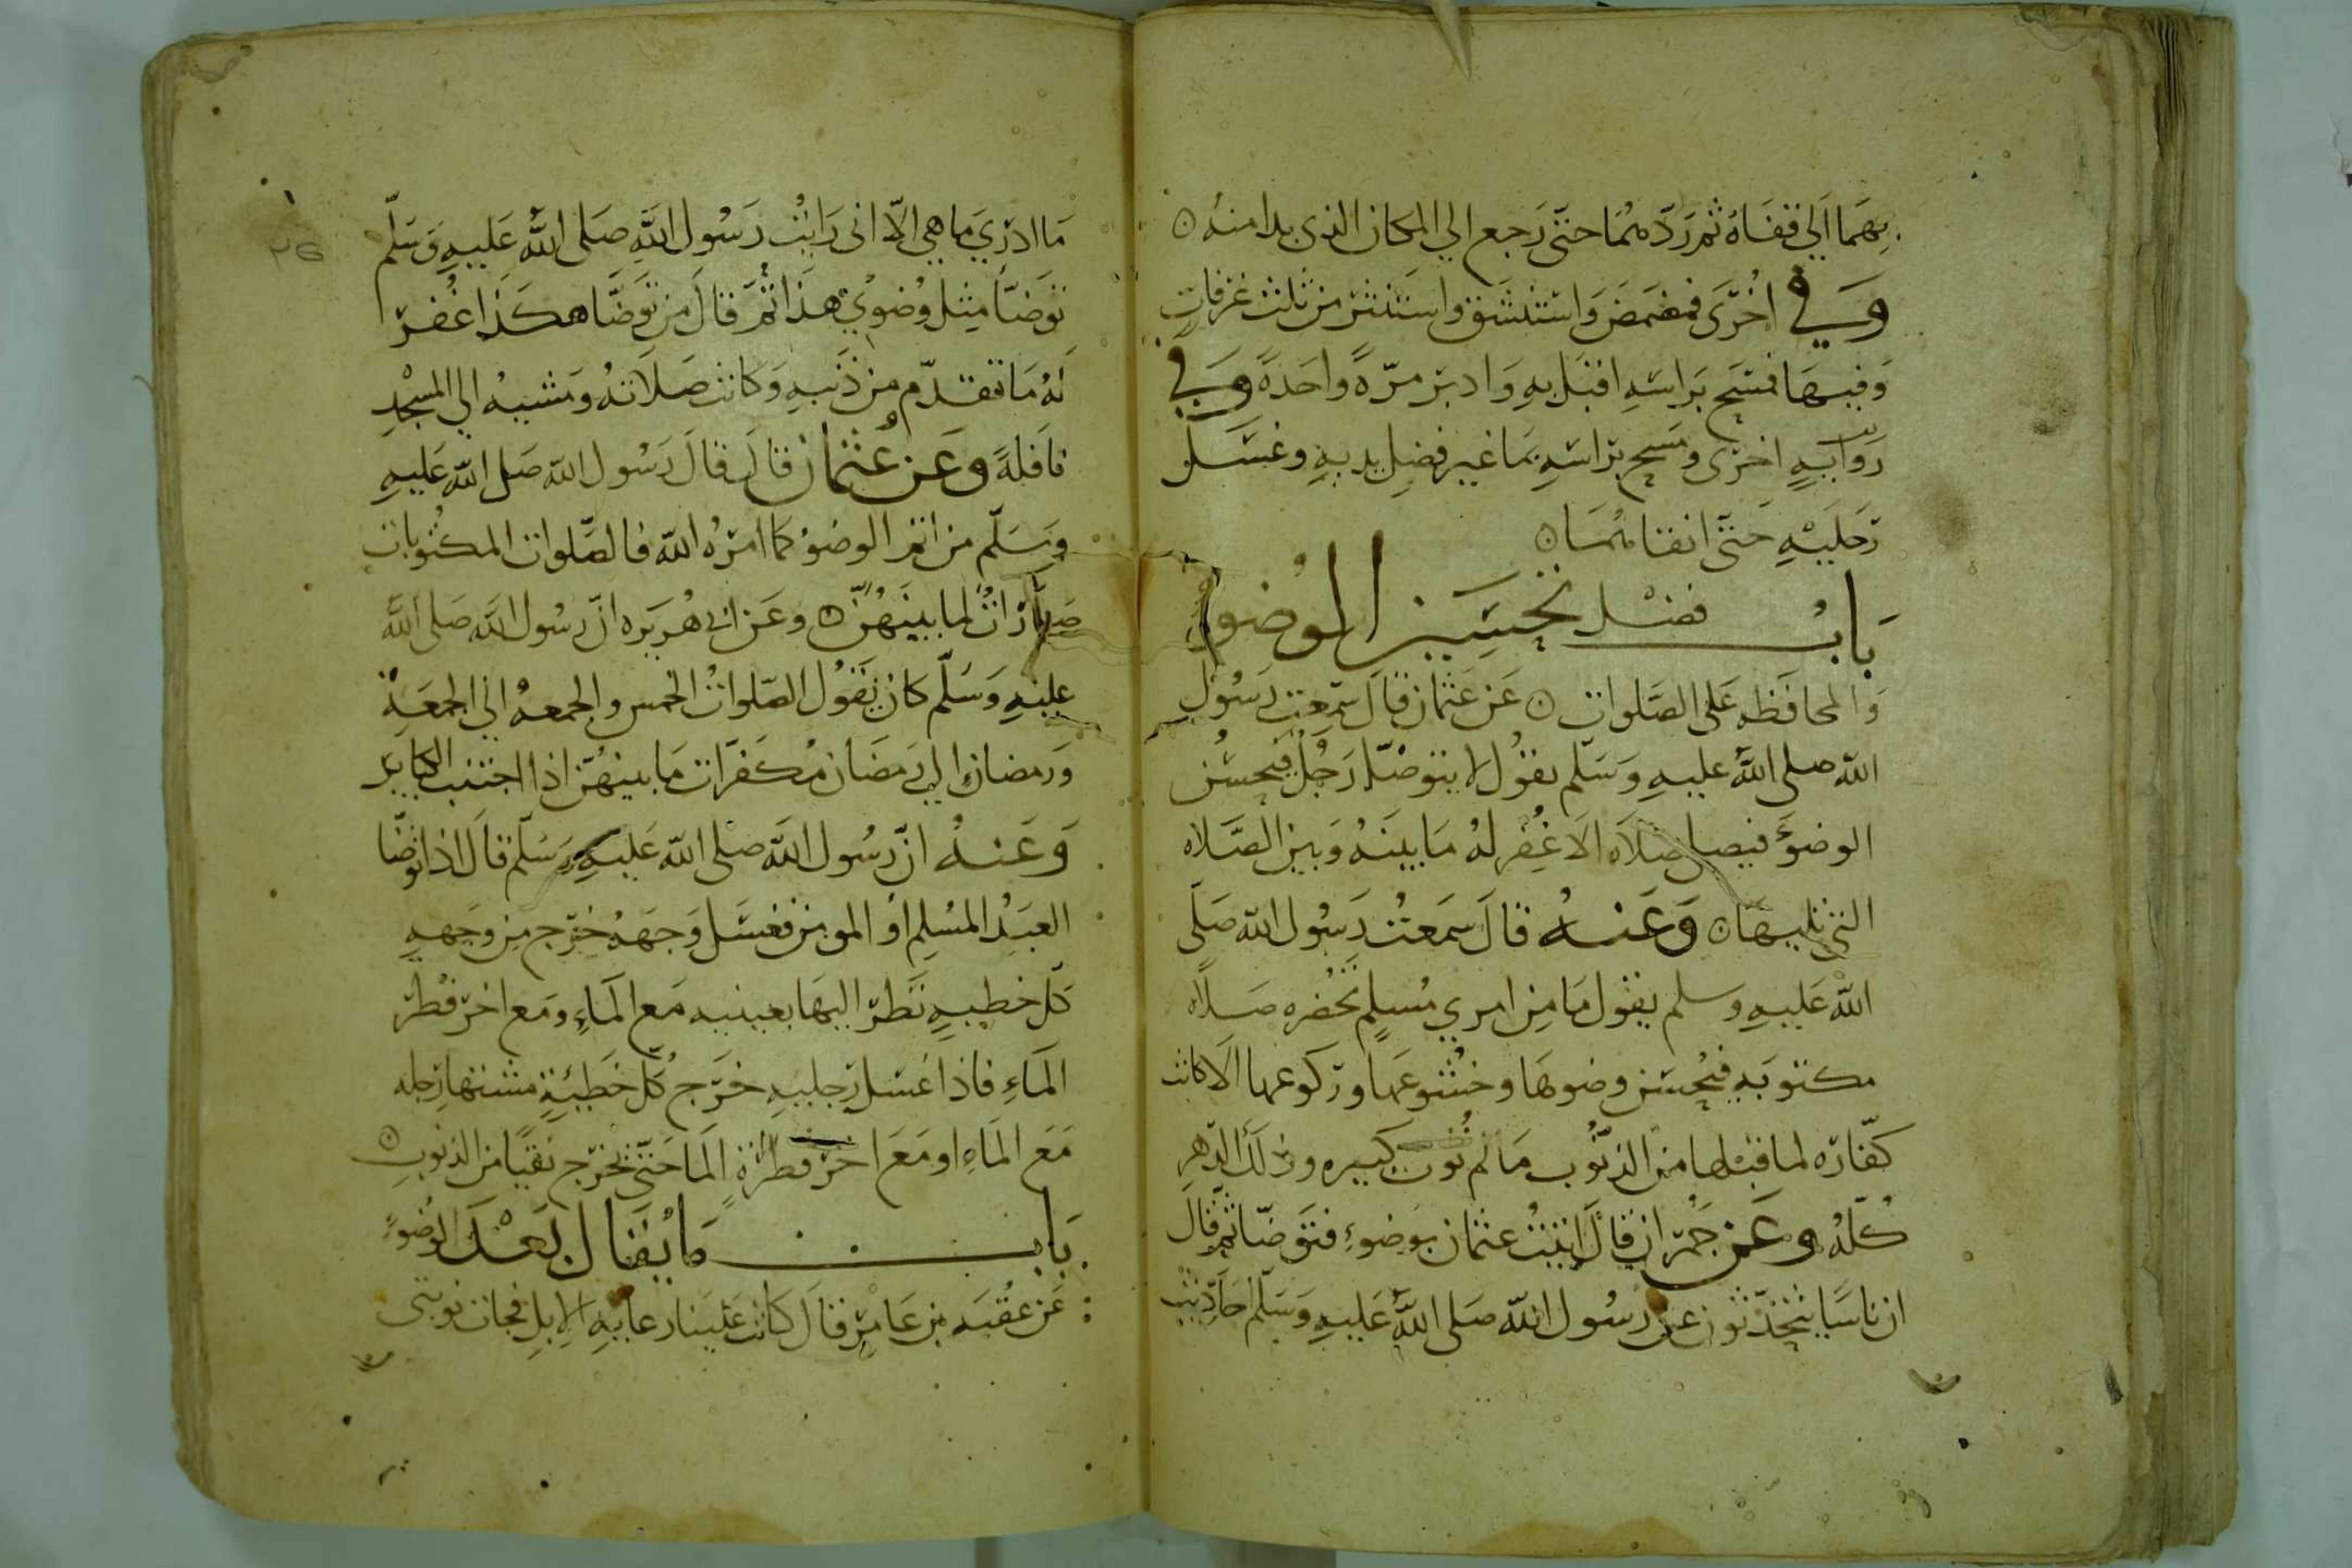 بِهَما اَلي قفَاهُ ثم رَدّهمُا حتَّى رَجع الي المكان الذى بدا منهُ ه
وَفي اخُرَى فمضمَضَ وَاسْتنْشَق واسَتنثرَ من ثلث غرفاتٍ
وَفيهَا فمسَح برَاسَهِ اقبَل بهِ وَادبرَ مرّةً واحَدةً وَفي
رَوايَهٍ اخرَى ومَسَح برَاسَهِ بمَا غير فضِل يديهِ وغسَل
رَجليَهِ حَتىَّ انقاهمُسَا ه
بَابُ فضْل تحَسَين الوُضو
وَالمحافَظه عَلى الصَّلوات ه عَن عَثمان قالَ سَمِعتُ رَسُول
اللّه صلى اللَّه عليهِ وَسَلّم يقوُل لا يتوضّا رَجُلٌ فيُحسُن
الوضؤَ فيصلى صَلَاه الَا غُفِر لهُ مَا بينَهُ وَبين الصَّلاه
التى تليهَا ه وَعَنهُ قالَ سَمعتُ رَسُول اللّه صَلّى
اللّه عَليهِ وسلم يقول مَا مِن امرىٍ مُسلِمٍ تحُضره صَلَاه
مكتوبَهٍ فيُحسن وضوهَا وخشُوعَها ورَكوعَها الَا كانت
كفّارَه لما قبْلها منَ الذنُوب مَا لم تُوت كبيره وذلَك الدّهرِ
كُلّهُ وعَن حُمْرَان قالَ اتَيتُ عثمان بوَضوءٍ فتوَضّا ثمّ قالَ
ان ناسًا يتحَدّثون عن رسُول اللّه صَلى اللَّه عَليهِ وَسَلّم احَادِيث
مَا ادرَي مَا هي الّا انى رَايْتُ رَسُول اللَّهِ صَلى اللَّه عَليهِ وَسَلّم
توَضّأ مِثل وُضوئي هذَا ثُمَّ قالَ مَن توَضَّا هكذَا غُفِرَ
لهُ مَا تقَدّم مِن ذَنبهِ وَكانت صَلَاتهُ ومَشيهُ الي المسْجدِ
نافلةً وعَن عُثمان قالَ قالَ رَسُول اللّه صَلى اللّه عَليهِ
وَسَلّم من اتم الوضوُ كما امَرهُ اللّه فالصّلوات المكتُوبات
كفَّارَاتُ لما بينَهُنّ ه وعَن ابى هُريَره انّ رسُول اللّه صَلى اللَّه
عليهِ وَسَلّم كان يَقوُل الصّلواتُ الخمس والجمعهُ الي الجمعَهْ
وَرمضان الي رَمضَان مُكفَراَت مَا بينهُن اذا اجتنب الكبَاير
وَعَنهُ انّ رسُول اللَّه صلى اللّه عَليهِ وَسَلّم قالَ اذا توضّا
العبَدُ المسُلِم اوُ المومِن فغسَل وَجهَهُ خرَج مِن وَجههِ
كل خطيهٍ نَظرَ اليهَا بعينيه مَع المَاءِ ومَع اخرَ قطر
المَاءِ فاذا غسَل رَجليهِ خرَج كُلّ خَطيئةٍ مشتهَا رَجله
مَع المَاءِ او مَعَ اخرَ قطرَةٍ المَا حَتىَّ يخرَج نقيًا من الذنوُبِ ه
بَابُ مَا يُقال بَعْدَ الوُضوءِ
عَن عقُبَه بن عَامرَ قالَ كانت عَلينا رعايَهُ الِابلِ فجات نوبتى